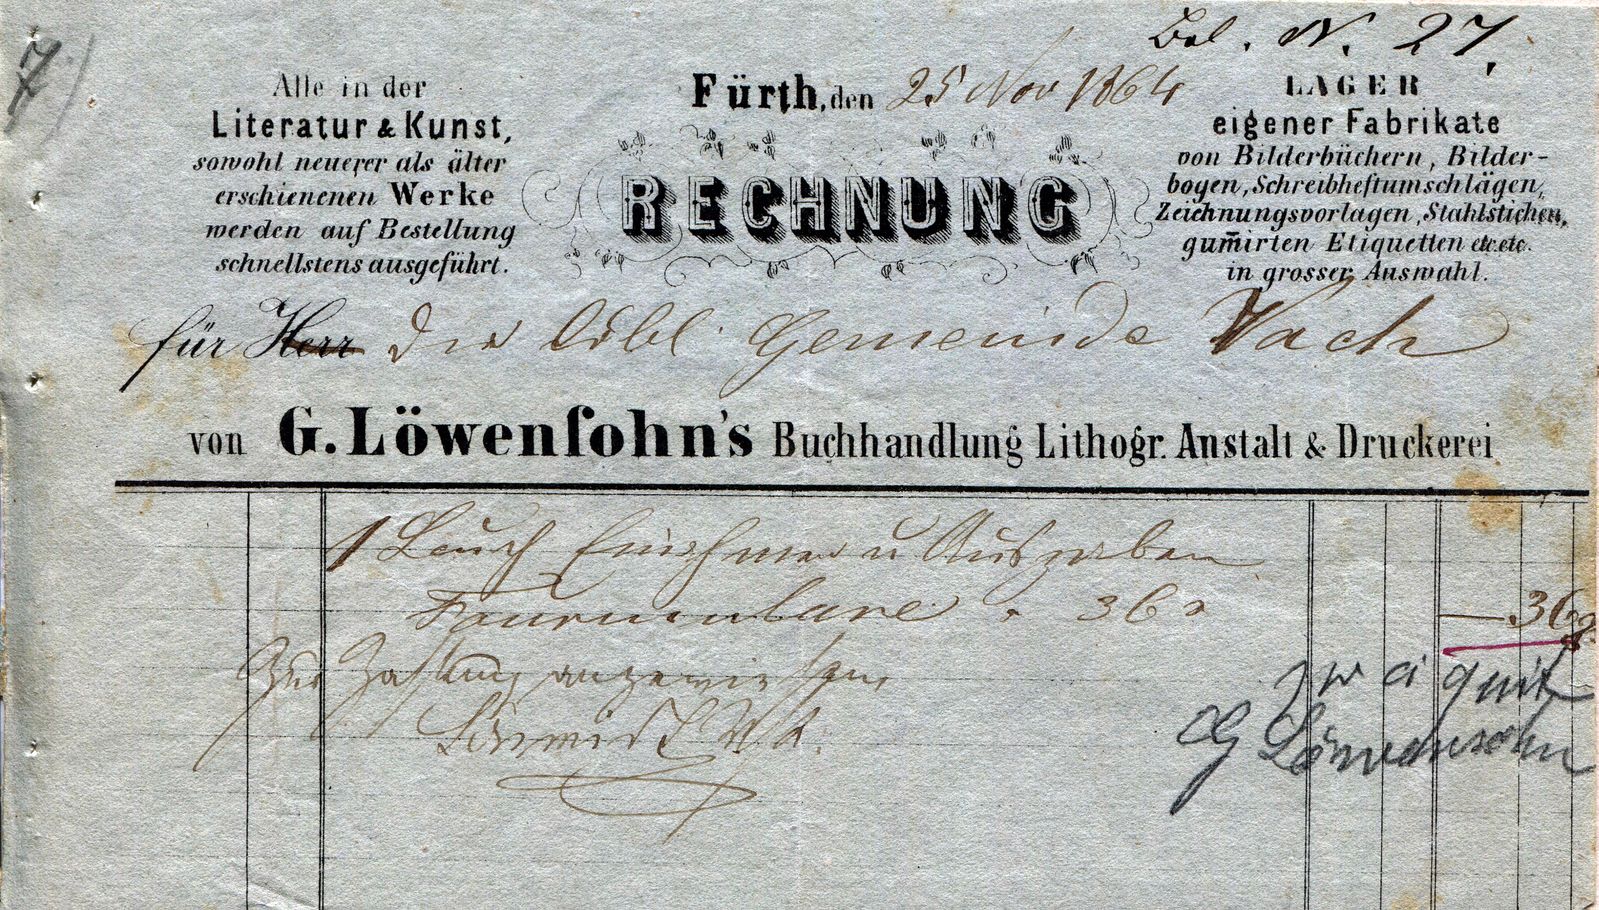 7)
Bel. N. 27,
Alle in der
Literatur & Kunst,
sowohl neuerer als älter
erschienenen Werke
werden auf Bestellung
schnellstens ausgeführt.
Fürth, den 25 Nov 1864
RECHNUNG
LAGER
eigener Fabrikate
von Bilderbüchern, Bilder-
bogen, Schreibheftumschlägen,
Zeichnungsvorlagen, Stahlstichen,
gum̅irten Etiquetten etc.etc.
in grosser Auswahl.
für Herr Die löbl. Gemeinde Vach
von G. Löwenſohn's Buchhandlung Lithogr. Anstalt & Druckerei
1 Buch Einnahmen u Ausgaben
Formulare 36
36
Zur Zahlung angewiesen
G Löwensohn